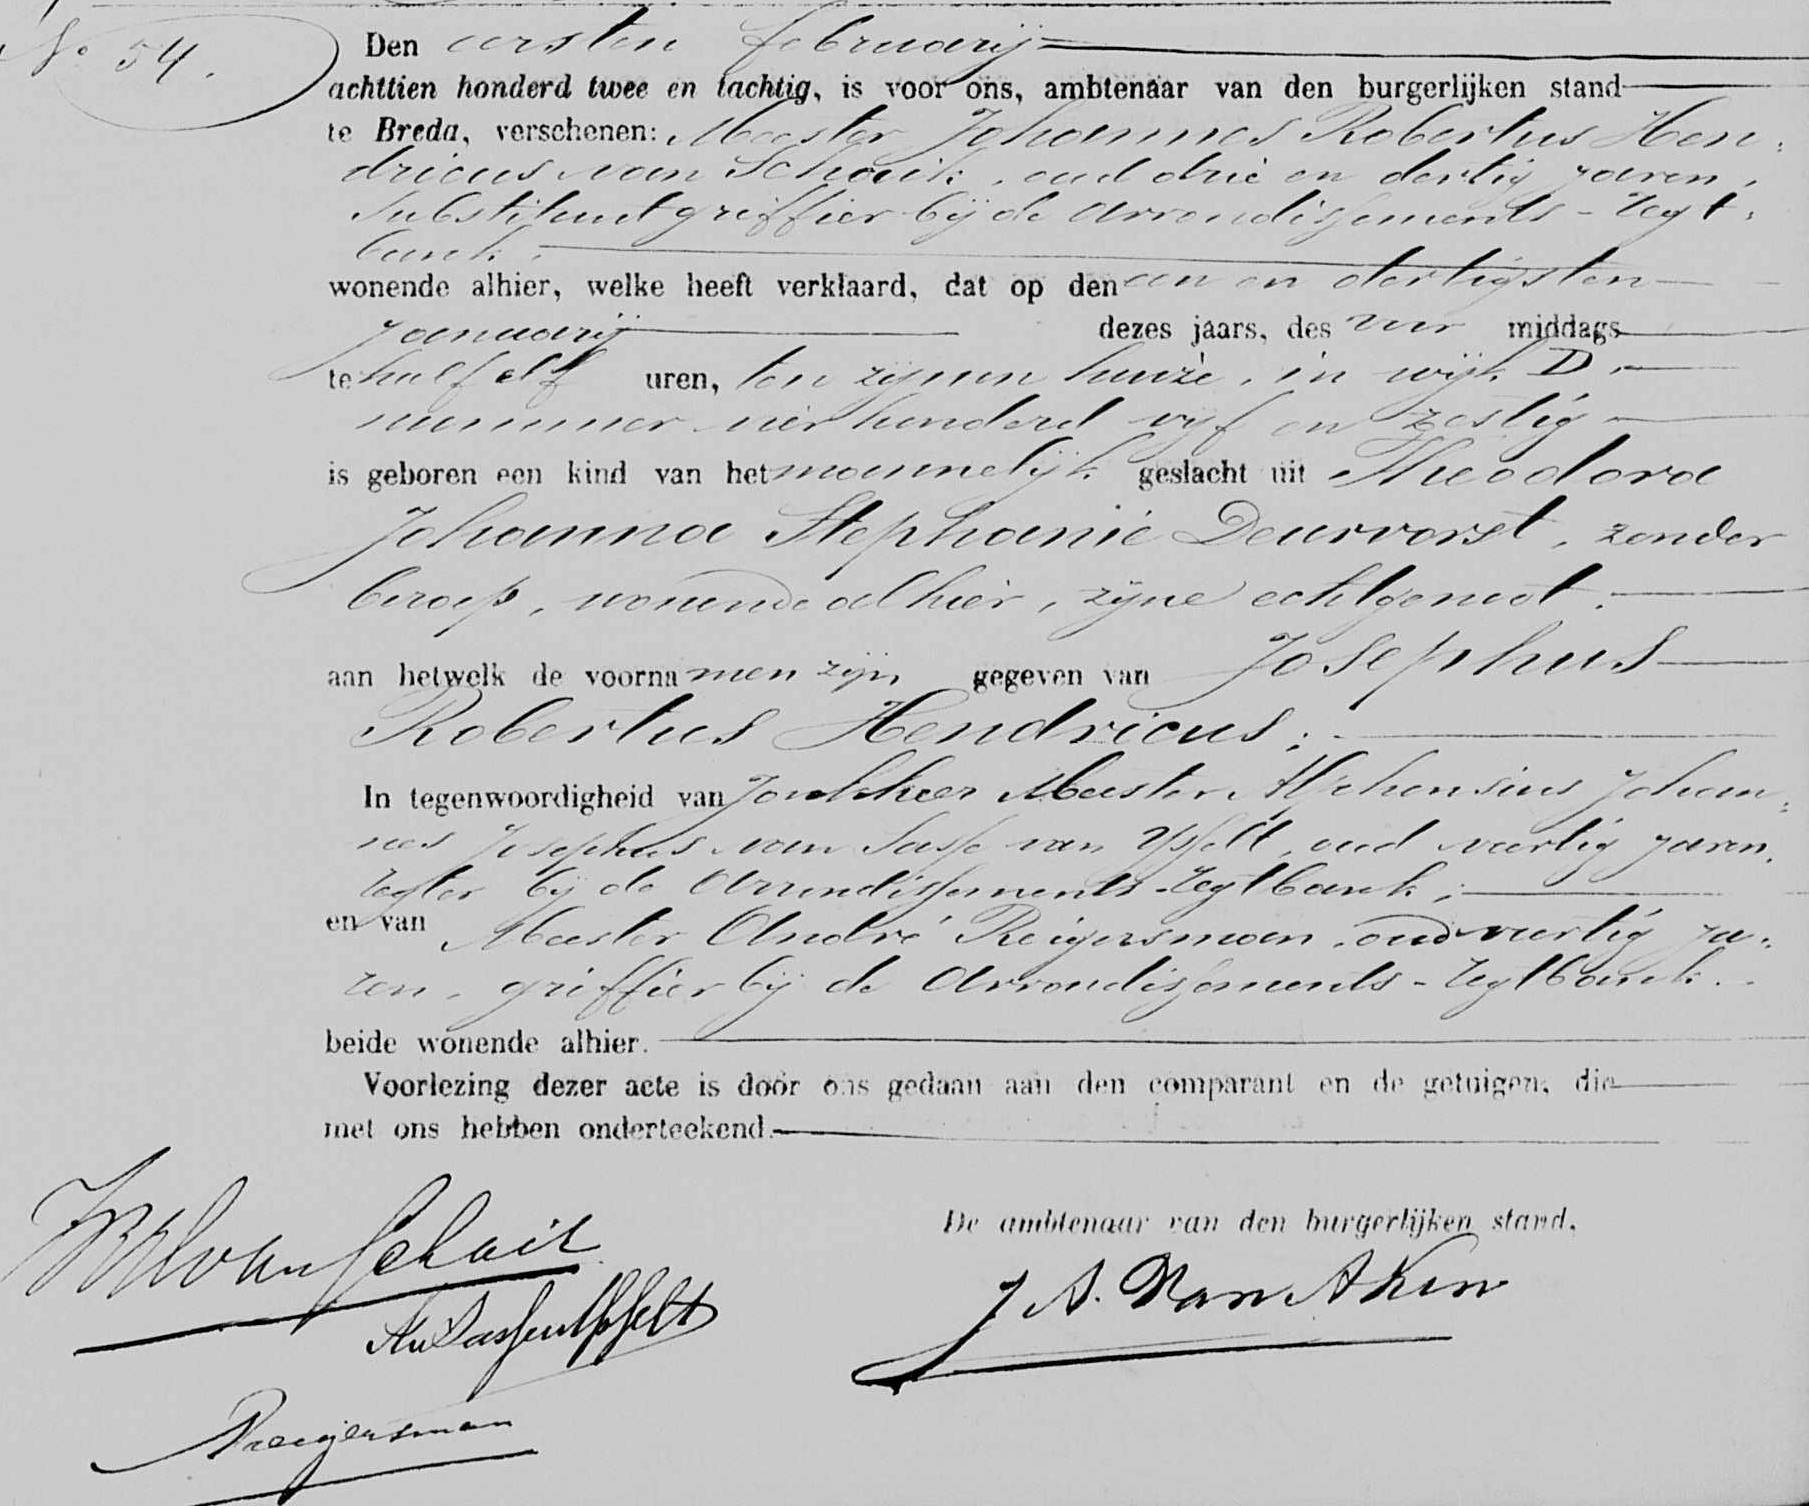 No 54.
Den eersten februarij
achttien honderd twee en tachtig, is voor ons, ambtenaar van den burgerlijken stand
te Breda, verschenen: Meester Johannes Robertus Hen-
dricus van Schaik, oud drie en dertig jaren,
Substituut griffier bij de Arrondissements-Regt-
bank,
wonende alhier, welke heeft verklaard, dat op den een en dertigsten
januarij dezes jaars, des voor middags
te half elf uren, ten zijnen huize, in wijk D,
nummer vierhonderd vijf en zestig
is geboren een kind van het mannelijk geslacht uit Theodora
Johanna Stephanie Deurvorst, zonder
beroep, wonende alhier, zijne echtgenoot.
aan hetwelk de voornamen zijn gegeven van Josephus
Robertus Hendricus;
In tegenwoordigheid van Jonkheer Meester Alphonsius Johan-
nes Josephus van Sasse van Ysselt, oud veertig jaren,
Regter bij de Arrondissements-Regtbank;
en van Meester André Reigersman, oud veertig ja-
ren, griffier bij de Arrondissements-Regtbank.
beide wonende alhier.
Voorlezing dezer acte is door ons gedaan aan den comparant en de getuigen, die
met ons hebben onderteekend.
JRHvanSchaik
De ambtenaar van den burgerlijken stand,
AvSassevYsselt
J A. Van Aken
Reigersman